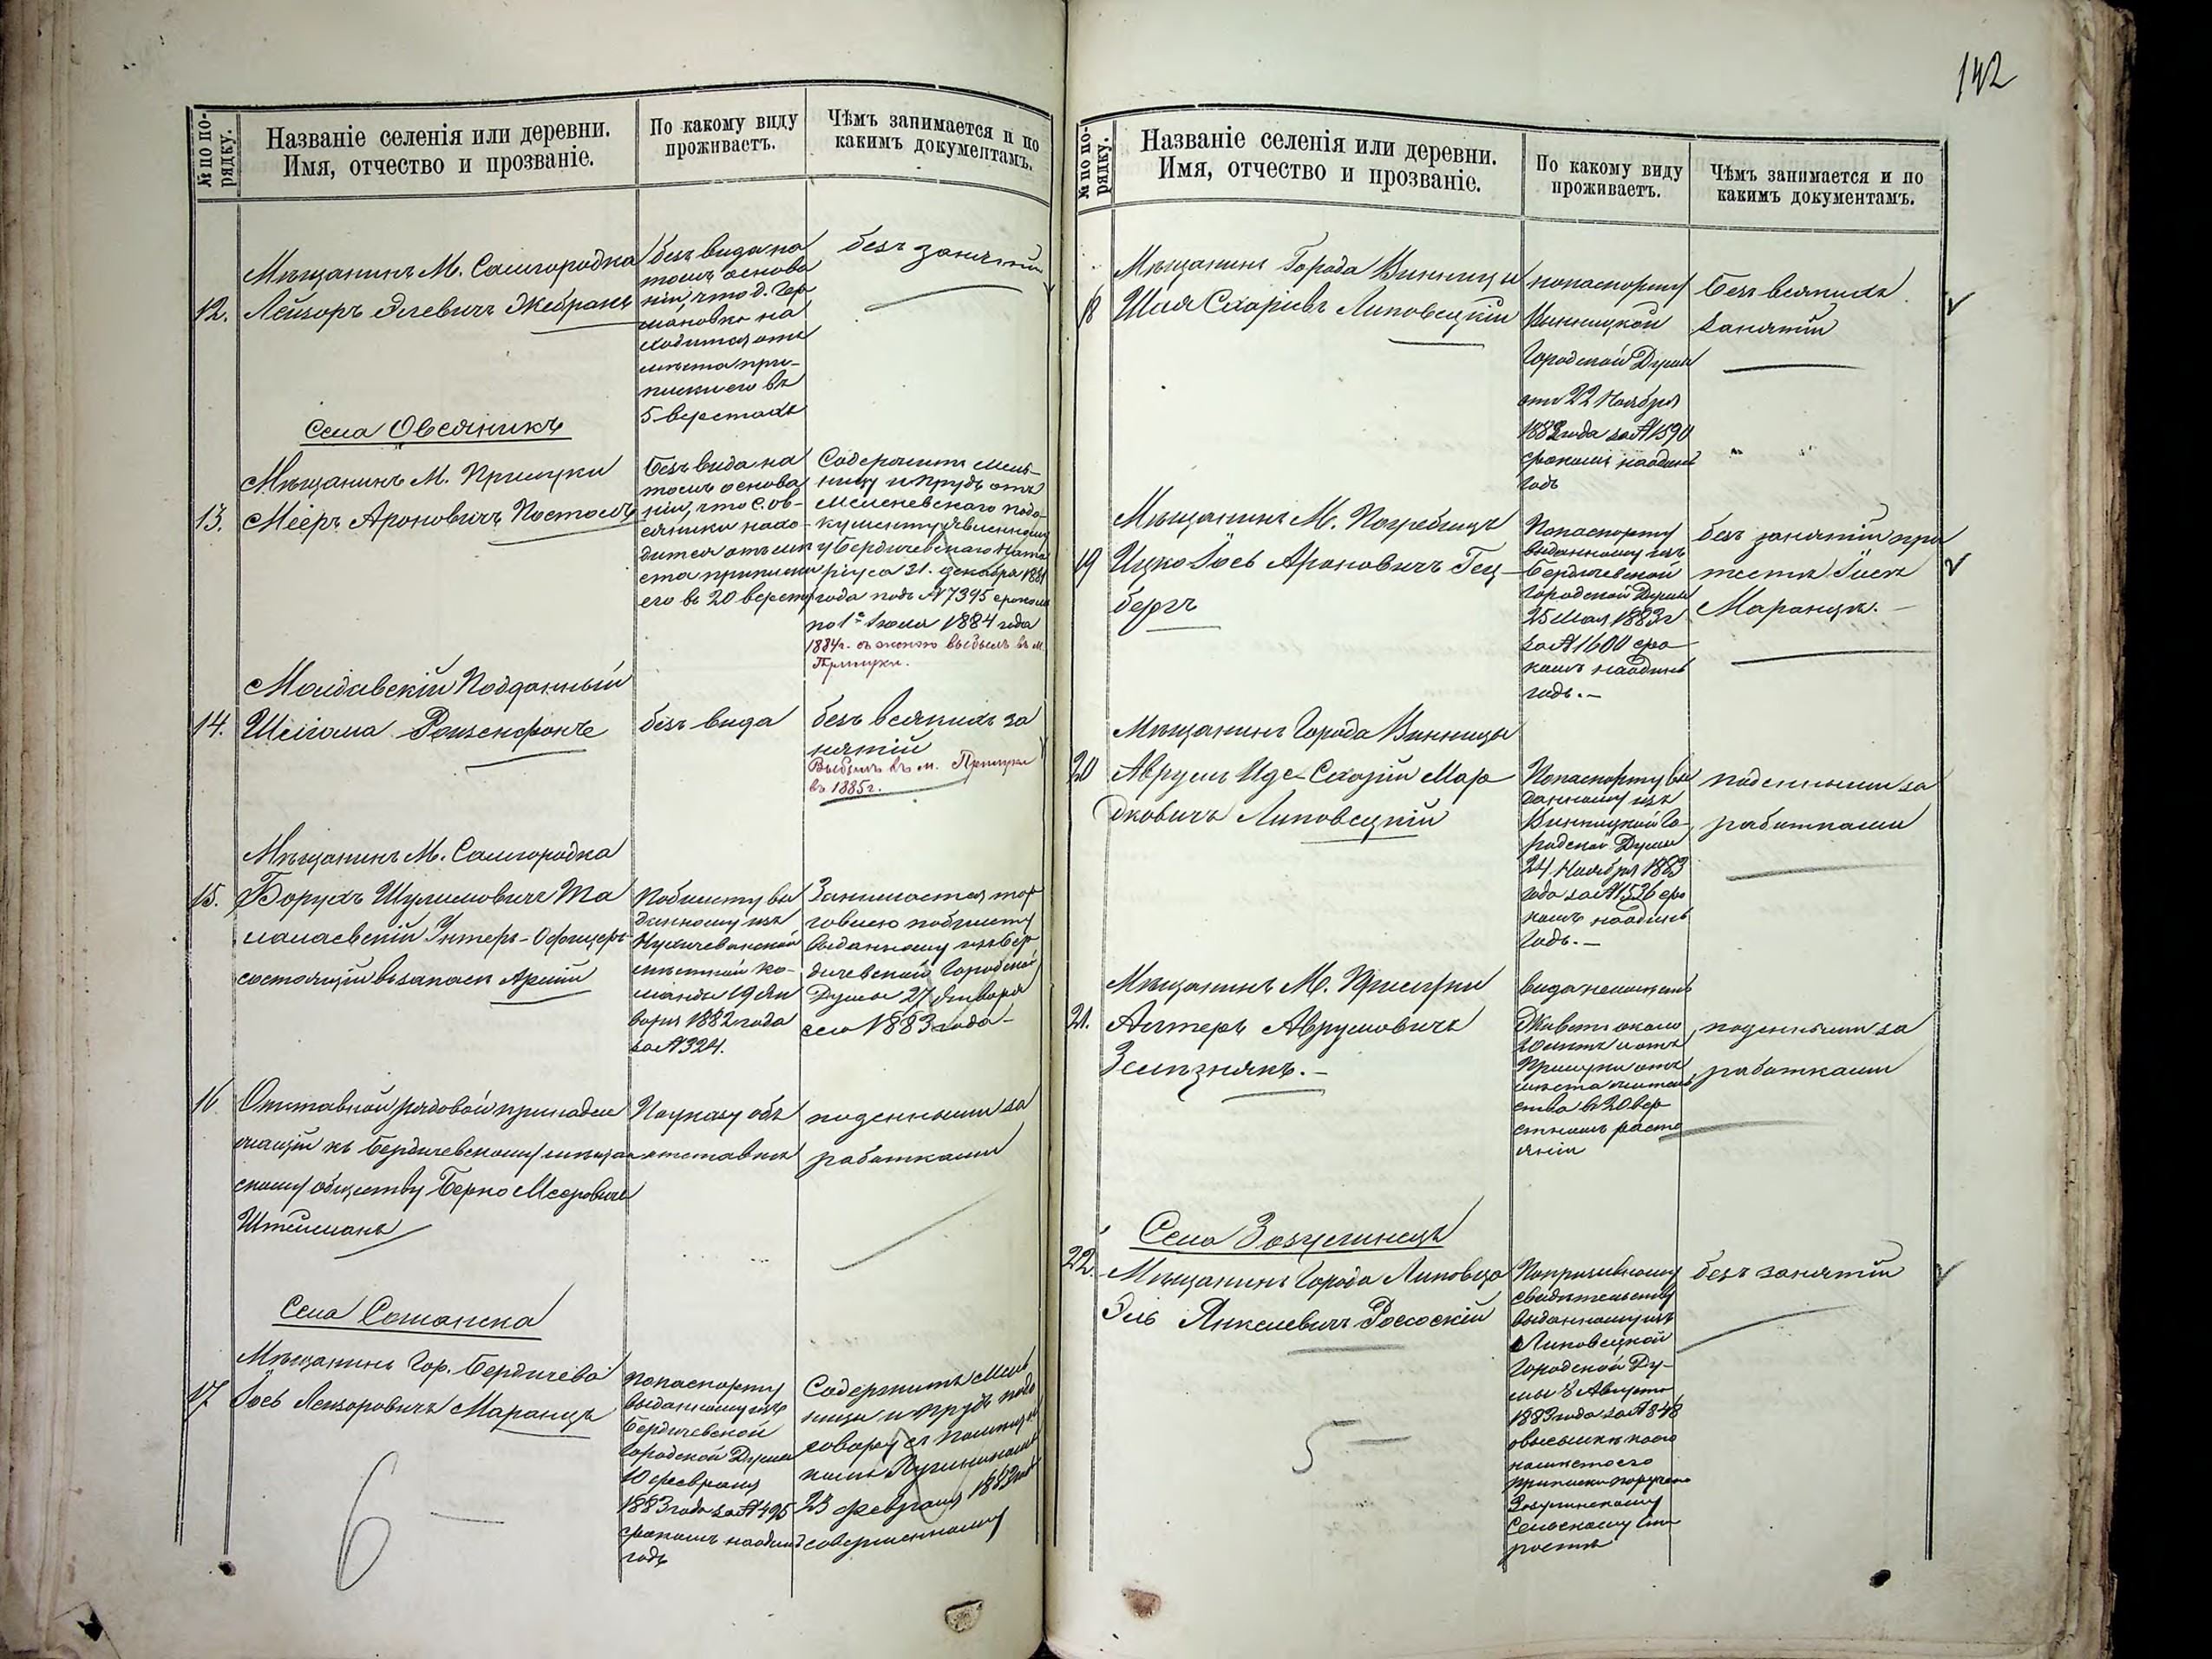 142
№ по по-
рядку.
Названіе селенія или деревни.
Имя, отчество и прозваніе.
По какому виду
проживаетъ.
Чѣмъ занимается и по
какимъ документамъ.
Мѣщанинъ М. Самгородка
12. Лейзоръ Элевичъ Жебракъ
безъ вида на
томъ основа
ніи, что д. Гер
мановка на
ходится отъ
мѣста при-
писки его въ
5 верстахъ
безъ занятій
Села Овсяникъ
Мѣщанинъ М. Прилуки
13. Мееръ Ароновичъ Постолъ
безъ вида на
томъ основа
ніи, что С. Ов-
сяники нахо-
дится отъ мѣ
ста приписки
его въ 20 верст
Содержитъ мель-
ницу и прудъ отъ
Мѣленевскаго подо-
кументу явленному
у Бердичевскаго Ната
ріуса 31. декабря 1881
года подъ № 7395 срокомъ
по 1е Іюля 1884 года
1884г. съ экономо выбылъ въ м.
Прилуки.
Молдавскій Подданный
14. Шліома Розенфонъ
безъ вида
безъ всякихъ за
нятій
Выбылъ въ м. Прилуки
въ 1885г.
Мѣщанинъ М. Самгородка
15. Борухъ Шулимовичъ Та
малаевскій Унтеръ-Офицеръ
состоящій въ запасѣ Арміи
По билету вы
данному изъ
мѣстной ко-
манды 19 Ян
варя 1882 года
за № 324.
Занимается тор
говлею по билету
выданному изъ Бер
дичевской Городской
Думы 27 Января
сего 1883 года-
16 Отставной рядовой принадле
жащій къ Бердичевскому мѣщан
скому обществу Берко Мееровичъ
Штейманъ
По указу объ
отставкѣ
поденными за
работками
Села Сошанска
Мѣщанинъ Гор. Бердичева
17. Іось Лейзоровичъ Маранцъ
По паспорту
выданному изъ
Бердичевской
Городской Думы
10 февраля
1883 года за № 495
срокомъ на одинъ
годъ
Содержитъ Мель
ницы и прудъ по до
говору съ помѣщи
комъ
23 февраля 1883 года
совершенному
6 —
№ по по-
рядку.
Названіе селенія или деревни.
Имя, отчество и прозваніе.
По какому виду
проживаетъ.
Чѣмъ занимается и по
какимъ документамъ.
Мѣщанинъ Города Винницы
18 Шая Сахаріевъ Липовецкій
по паспорту
Винницкой
Городской Думы
отъ 22 Ноября
1882 года за № 1590
срокомъ на одинъ
годъ
Безъ всякихъ
занятій
Мѣщанинъ М. Погребищъ
19 Ицко Іось Ароновичъ Гец-
бергъ
По паспорту
выданному изъ
Бердичевской
Городской Думы
25 Мая 1883 г
за № 1600 сро
комъ на одинъ
годъ.-
безъ занятій при
тестѣ Іосѣ
Маранцѣ.-
Мѣщанинъ Города Винницы
20 Аврумъ Иде-Сахарій Мор
дковичъ Липовецкій
По паспорту вы
данному изъ
Винницкой Го-
родской Думы
24 Ноября 1883
года за № 1536 сро
комъ на одинъ
годъ.-
поденными за
работками
Мѣщанинъ М. Прилуки
21. Алтеръ Аврумовичъ
Зелизнякъ.-
вида неимѣетъ
Живетъ около
10 лѣтъ и отъ
Прилуки отъ
мѣста житель
ства въ 20 вер
стномъ расто
яніи
поденными за
работками
Села Зозулинецъ
22. Мѣщанинъ Города Липовца
Эль Янкелевичъ Россоскій
По призывному
свидѣтельству
выданному изъ
Липовецкой
Городской Ду-
мы 8 Августа
1883 года за № 848
о высылкѣ коего
на мѣсто его
приписки поручено
Зозулинскому
Сельскому Ста
ростѣ
безъ занятій
5 —